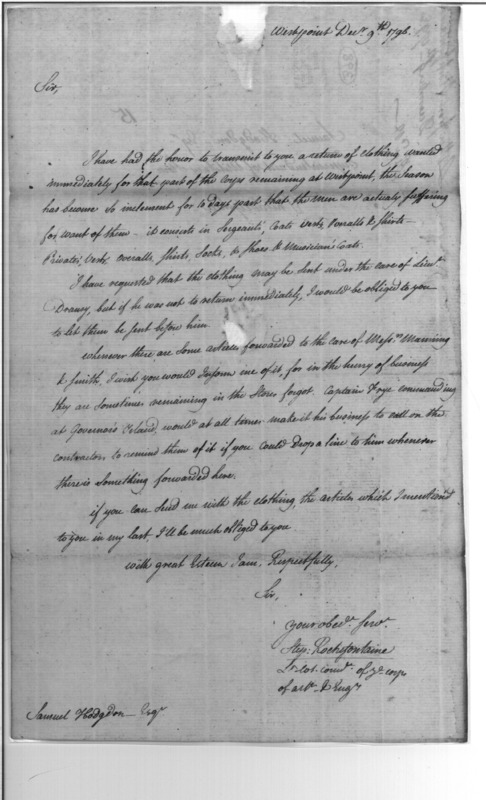 Westpoint Decr. 9th 1796.
Sir,
I have had the honor to transmit to you a return of clothing wanted
immediately for that part of the corps remaining at Westpoint, the season
has become so inclement for 10 days past that the men are actualy suffering
for want of them - it consists in Sergeants, Coats vests, overalls & shirts -
Privates, vests, overalls, shirts, socks, & shoes & Musician's Coats.
I have requested that the clothing may be sent under the care of Lieut.
Dransy, but if he was not to return immediately, I would be obliged to you
to let them be sent before him.
whenever there are some articles forwarded to the care of Messrs. Manning
& Smith, I wish you would inform me of it, for in the hurry of business
they are sometimes remaining in the Store forgot. Captain Frye commanding
at Governor's Island, would at all times make it his business to call on the
contractors to remind them of it if you could drop a line to him whenever
there is something forwarded here.
if you can send me with the clothing, the articles which I mention'd
to you in my last, I'll be much obliged to you
with great Esteem I am, Respectfully,
Sir,
your obedt. servt.
Step. Rochefontaine
Lt. col. comdt. of ye corps
of artts. & Engrs
Samuel Hodgdon Esqr